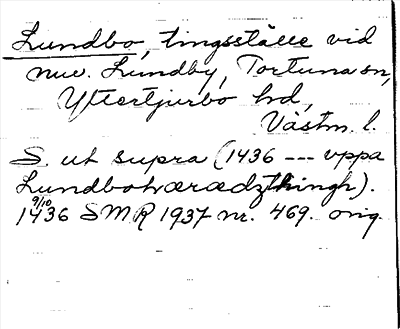 Lundbo, tingsställe vid
nuv. Lundby, Tortuna sn,
Yttertjurbo hd,
Västm. l.
S. ut supra (1436 --- uppa
Lundbohæradzthingh).
9/10
1436 SMR 1937 nr. 469. orig.